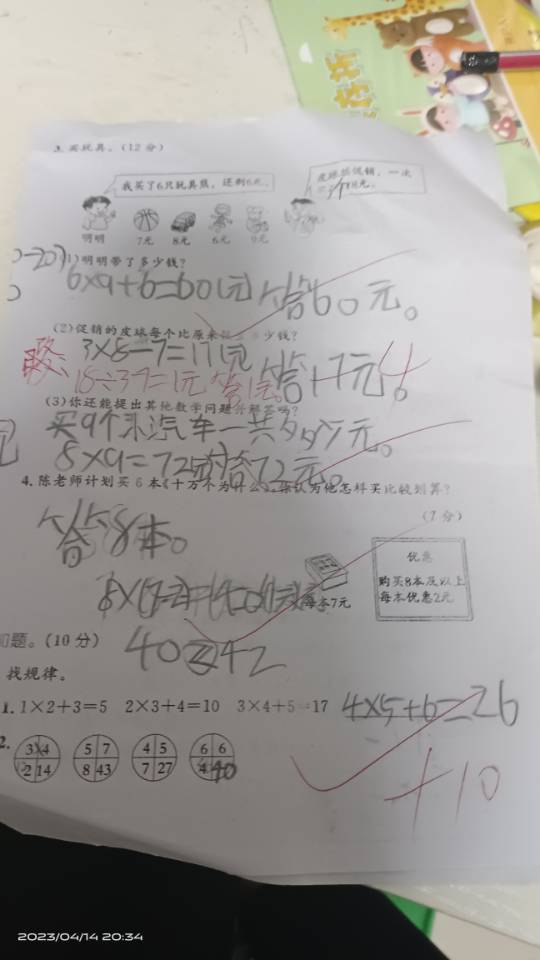 3.买玩具。(12分)
我买了6只玩具熊，还剩6元。
皮球促销，一次
明明
7元 8元 6元 9元
(1)明明带了多少钱?
6×9+6=60(元) 答60元。
(2)促销的皮球每个比原来 少钱?
3×8-7=17(元 答17元。
18÷3 答1元。
4
(3)你还能提出其他数学问题并解答吗?
买9个 汽车一共多少元。
8×9=72(元) 答72元。
4.陈老师计划买6本《十万个为什么》,你认为他怎样买比较划算?
(7分)
答8本。
优惠
购买8本及以上
每本优惠2元
每本7元
40 42
题。(10分)
找规律。
1.1×2+3=5 2×3+4=10 3×4+5=17 4×5+6=26
2.
3 4 5 7 4 5 6 6
2 14 8 43 7 27 4 40
+10
2023/04/14 20:34